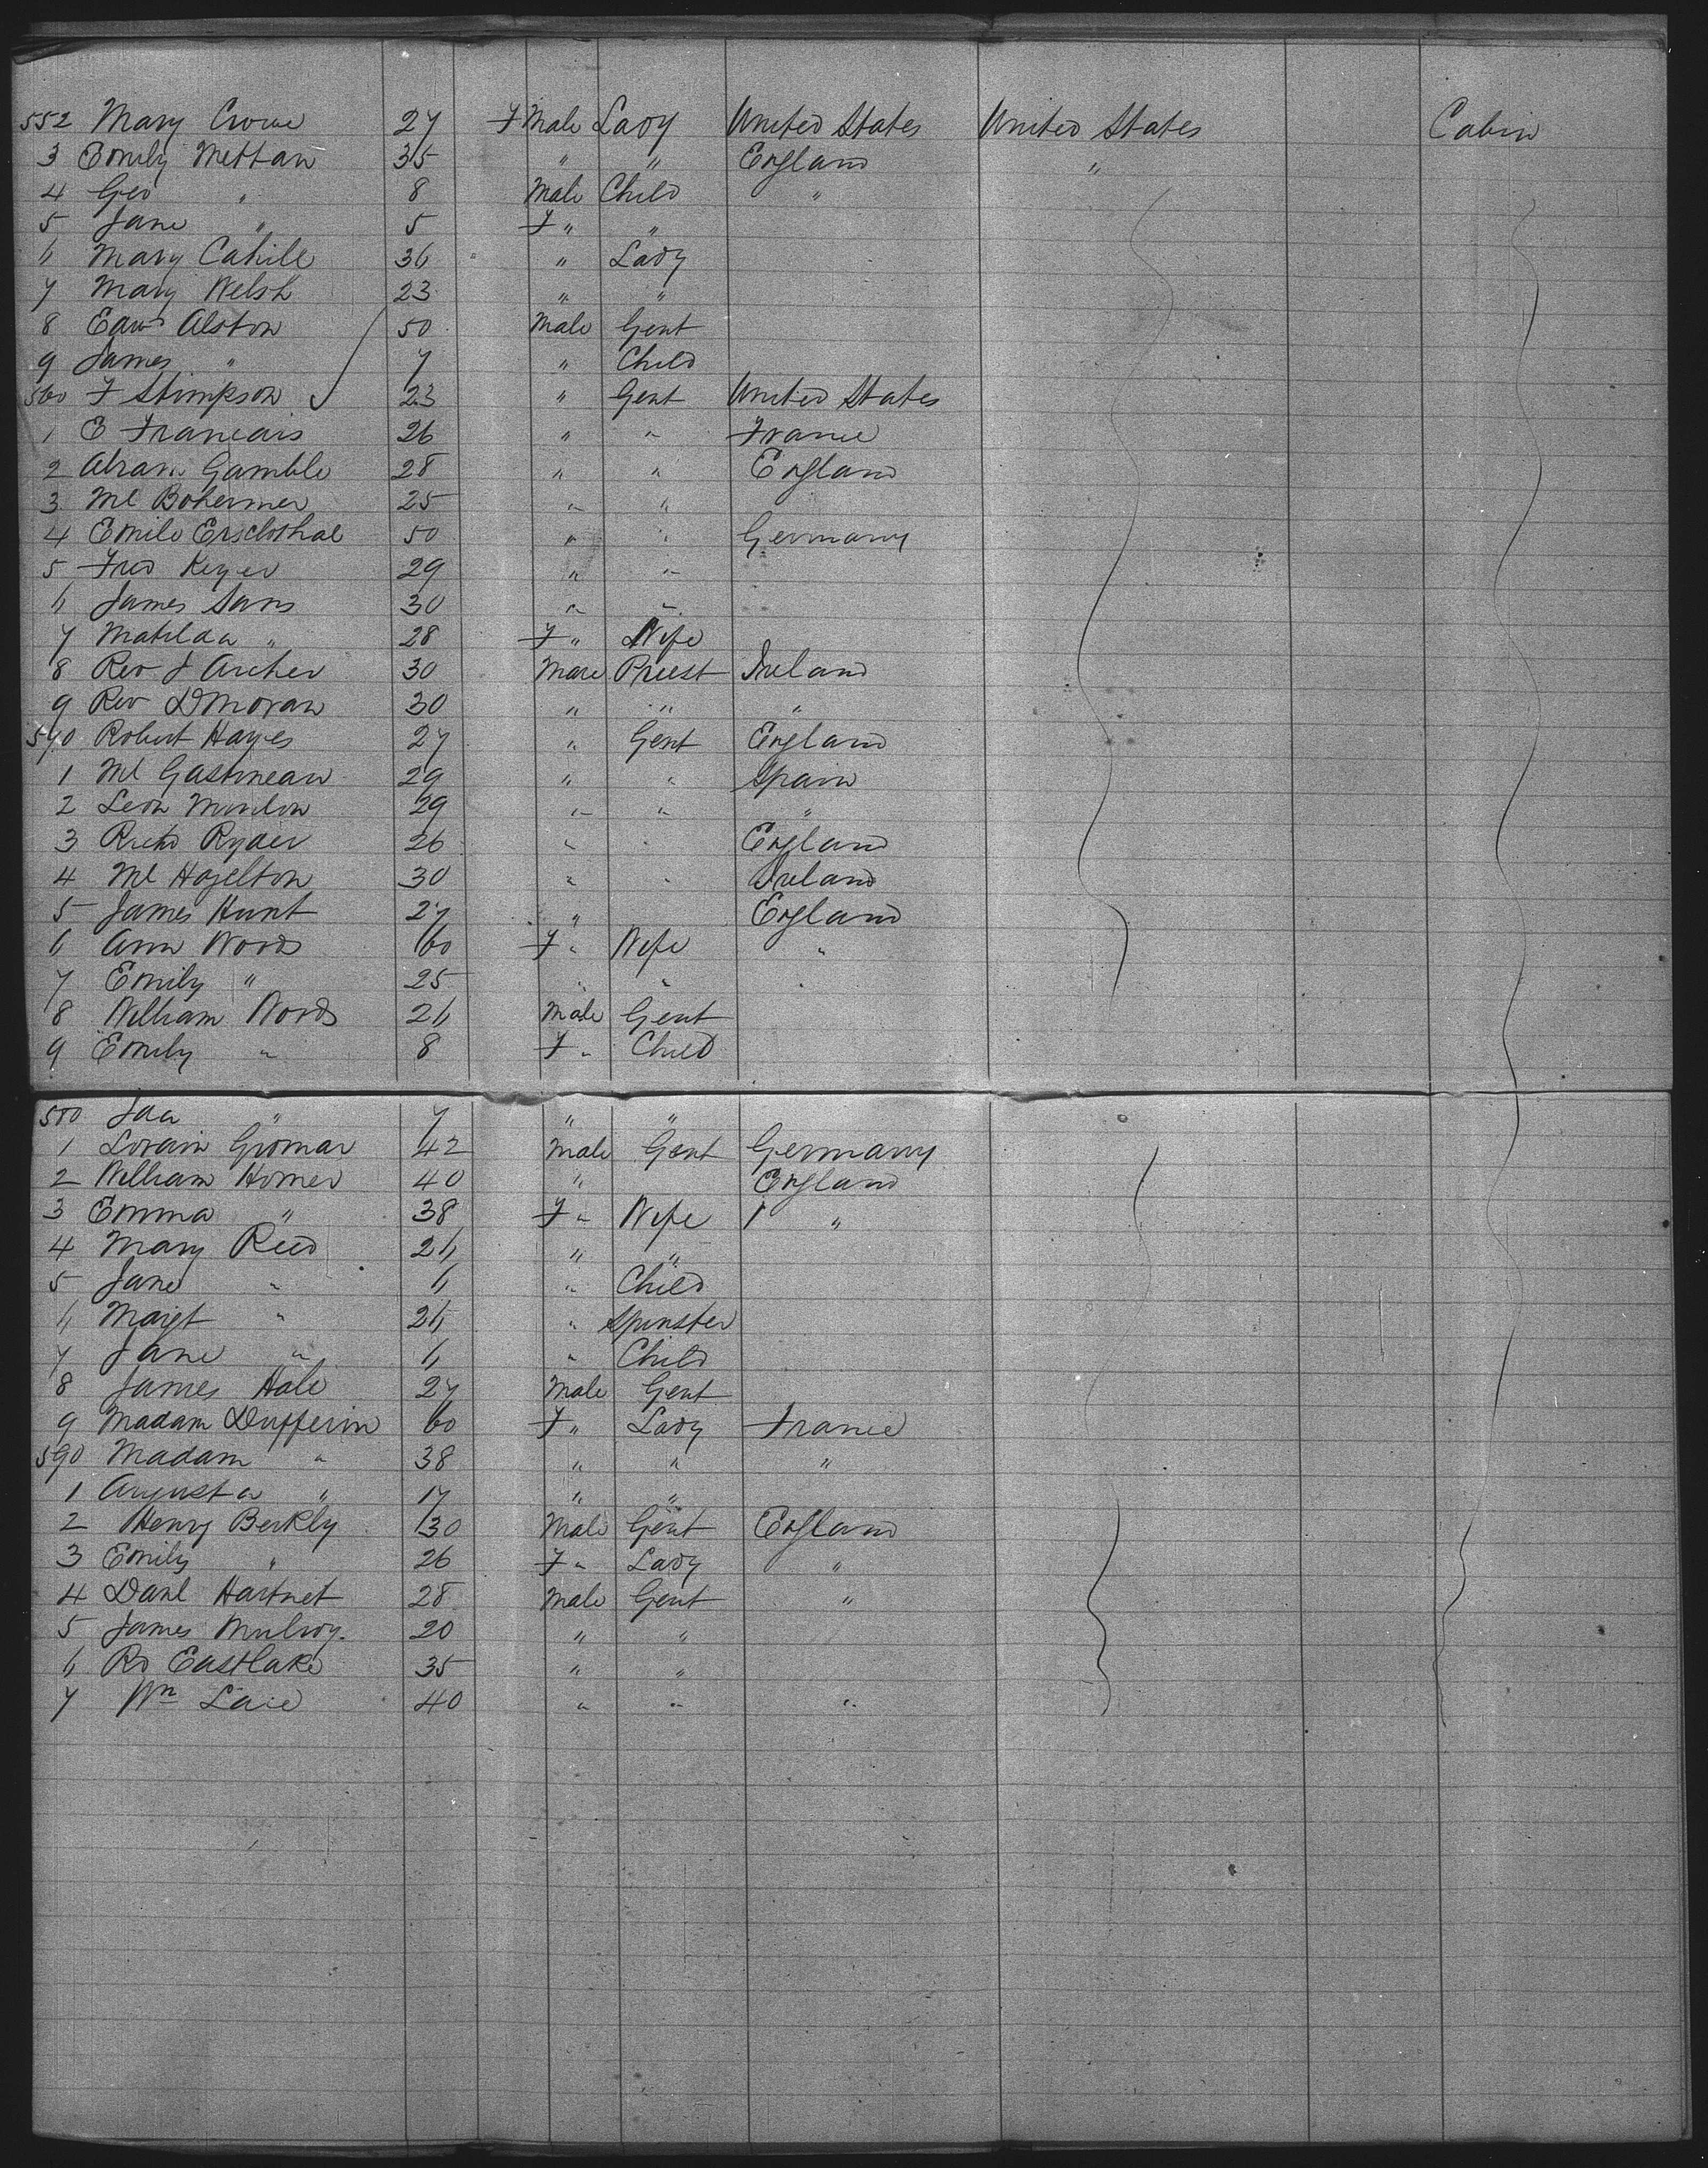 552 Mary Crowe 27 F Male Lady United States United States Cabin
3 Emily Mettan 35 " " England "
4 Geo " 8 Male Child "
5 Jane " 5 F " "
6 Mary Cahill 36 " Lady
7 Mary Welsh 23 " "
8 Edwd Alston 50 Male Gent
9 James " 7 " Child
560 F Stimpson 23 " Gent United States
1 E Francais 26 " " France
2 Abram Gamble 28 " " England
3 Ml Bohermer 25 " "
4 Emile 50 " " Germany
5 Fred Keyer 29 " "
6 James Sans 30 " "
7 Matilda " 28 F " Wife
8 Rev J Archer 30 Male Priest Ireland
9 Rev D Moran 30 " " "
570 Robert Hayes 27 " Gent England
1 Ml Gastineau 29 " " Spain
2 Leon 29 " " "
3 Richd Ryder 26 " " England
4 Ml Hazelton 30 " " Ireland
5 James Hunt 27 " England
6 Ann Woods 60 F " Wife "
7 Emily " 25 " " "
8 William Woods 26 Male Gent
9 Emily " 8 F " Child
580 Ida " 7 " "
1 Lorain Gromar 42 Male Gent Germany
2 William Homer 40 " England
3 Emma " 38 F " Wife "
4 Mary Reed 26 " "
5 Jane " 6 " Child
6 Margt " 26 " Spinster
7 Jane " 6 " Child
8 James Hale 27 Male Gent
9 Madam Dufferin 60 F " Lady France
590 Madam " 38 " " "
1 Augusta " 17 " "
2 Henry Berkly 30 Male Gent England
3 Emily " 26 F " Lady "
4 Danl Hartnet 28 Male Gent "
5 James Mulroy 20 " "
6 Rd Eastlake 35 " "
7 Wm 40 " " "